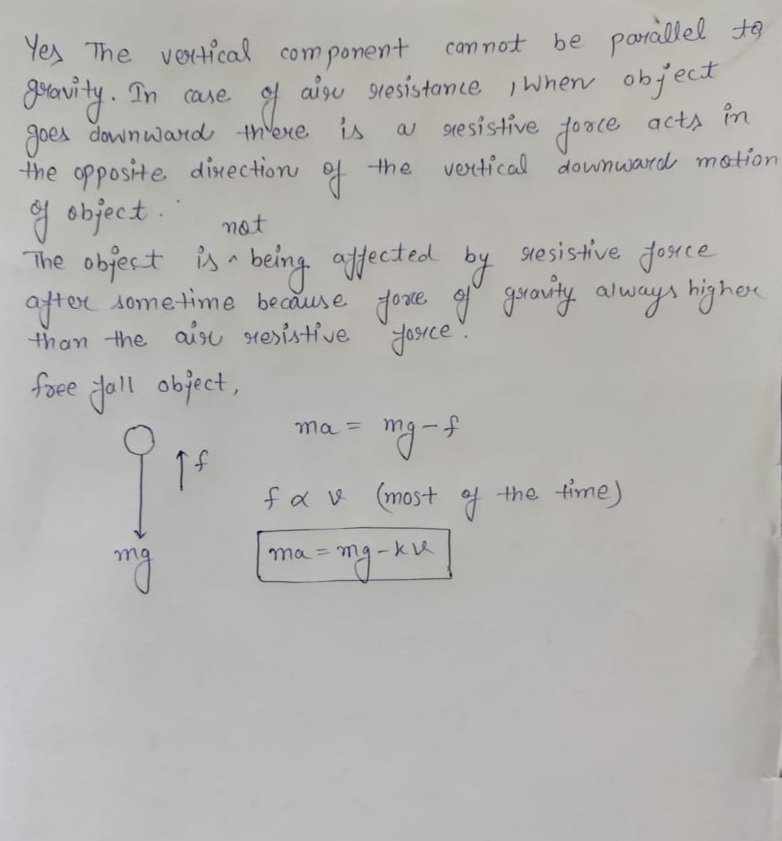 Yes The vertical component cannot be parallel to
gravity. In case of air resistance, When object
goes downward there is a resistive force acts in
the opposite direction of the vertical downward motion
of object.
not
The object is ^ being affected by resistive force
after sometime because force of gravity always higher
than the air resistive force.
free fall object,
ma = mg - f
↑ f
f ∝ v (most of the time)
mg
ma = mg - kv